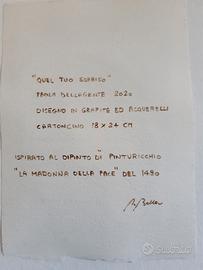 "QUEL TUO SORRISO"
PAOLA DELLAGENTE 2020
DISEGNO IN GRAFITE ED ACQUERELLI
CARTONCINO 18 X 24 CM
ISPIRATO AL DIPINTO DI PINTURICCHIO
"LA MADONNA DELLA PACE" DEL 1490
subito